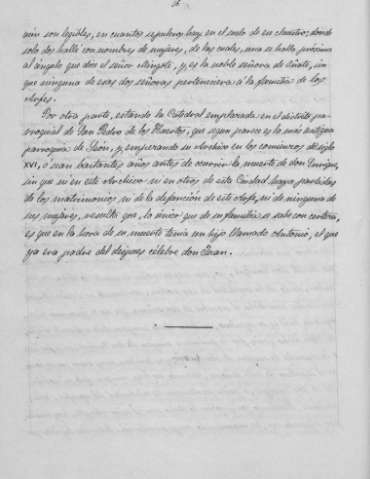 aún son legibles, en cuantos sepulcros hay en el suelo de su claustro, donde
solo dos hallé con nombres de mujeres, de las cuales, una se halla próxima
al ángulo que dice el señor Mingote, y es la noble señora de Oñate, sin
que ninguna de esas dos señoras perteneciera á la familia de los
Arfes.
Por otra parte, estando la Catedral emplazada en el distrito pa-
rroquial de San Pedro de los Huertos, que según parece es la más antigua
parroquia de León, y empezando su Archivo en los comienzos del siglo
XVI, ó sean bastantes años antes de ocurrir la muerte de don Enrique,
sin que ni en este Archivo ni en otros de esta Ciudad haya partidas
de los matrimonios ni de la defunción de este Arfe, ni de ninguna de
sus mujeres, resulta que, lo único que de su familia se sabe con certeza,
es que en la hora de su muerte tenía un hijo llamado Antonio, el que
ya era padre del después célebre don Juan.